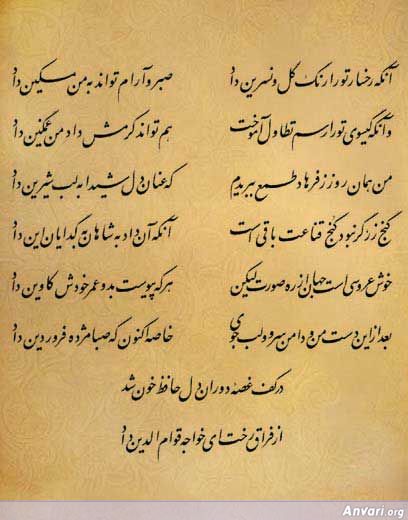 آنکه رخسار تو را رنگ گل و نسرین داد صبر و آرام تواند به من مسکین داد
وآنکه گیسوی تو را رسم تطاول آموخت هم تواند کرمش داد من غمگین داد
من همان روز ز فرهاد طمع ببریدم که عنان دل شیدا به لب شیرین داد
گنج زر گر نبود کنج قناعت باقی است آنکه آن داد به شاهان به گدایان این داد
خوش عروسی است جهان از ره صورت لیکن هرکه پیوست بدو عمر خودش کاوین داد
بعد از این دست من و دامن سرو و لب جوی خاصه اکنون که صبا مژده فروردین داد
در کف غصه دوران دل حافظ خون شد
از فراق رخت ای خواجه قوام الدین داد
Anvari.org